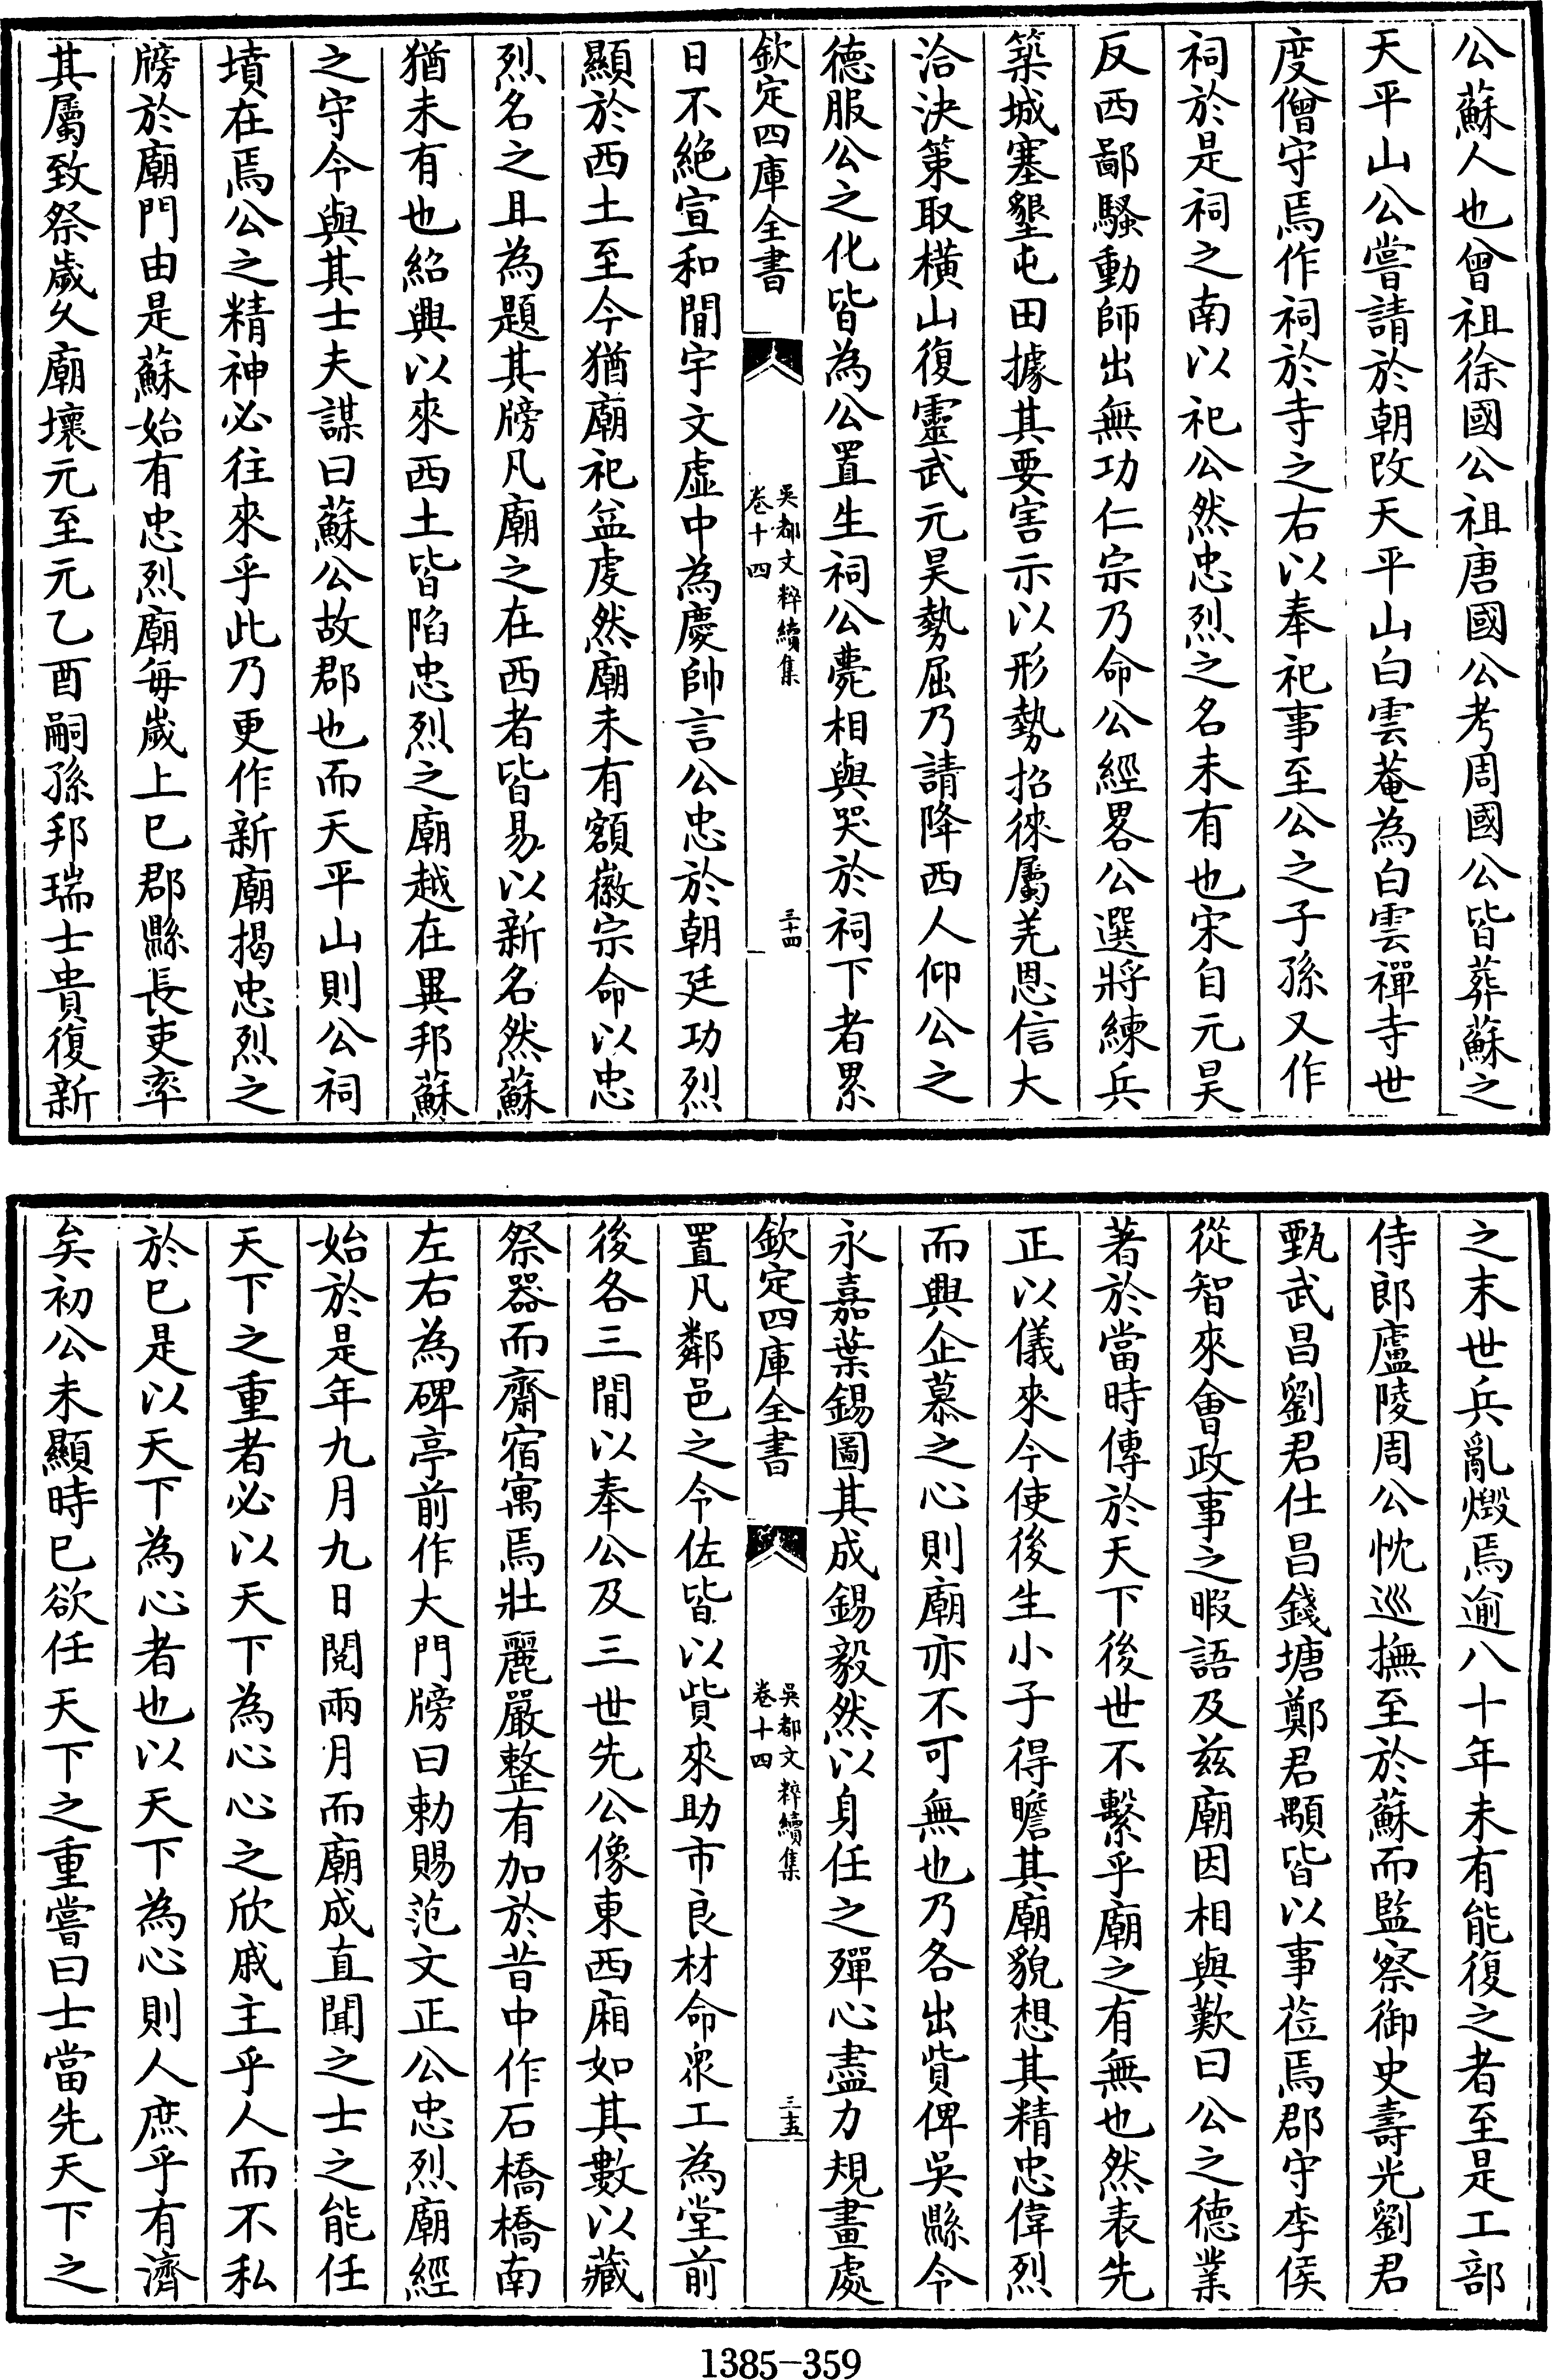 公蘇人也曾祖徐國公祖唐國公考周國公皆葬蘇之
天平山公嘗請於朝改天平山白雲菴為白雲禪寺世
度僧守焉作祠於寺之右以奉祀事至公之子孫又作
祠於是祠之南以祀公然忠烈之名未有也宋自元昊
反西鄙騷動師出無功仁宗乃命公經畧公選將練兵
築城塞墾屯田據其要害示以形勢招徠屬羌恩信大
洽決策取橫山復靈武元昊勢屈乃請降西人仰公之
德服公之化皆為公置生祠公薨相與哭於祠下者累
欽定四庫全書
吳都文粹續集
卷十四
三十四
日不絶宣和間宇文虛中為慶帥言公忠於朝廷功烈
顯於西土至今猶廟祀益虔然廟未有額徽宗命以忠
烈名之且為題其牓凡廟之在西者皆易以新名然蘇
猶未有也紹興以來西土皆陷忠烈之廟越在異邦蘇
之守令與其士夫謀曰蘇公故郡也而天平山則公祠
墳在焉公之精神必往來乎此乃更作新廟揭忠烈之
牓於廟門由是蘇始有忠烈廟每歲上巳郡縣長吏率
其屬致祭歲久廟壞元至元乙酉嗣孫邦瑞士貴復新
之末世兵亂燬焉逾八十年未有能復之者至是工部
侍郎盧陵周公忱巡撫至於蘇而監察御史壽光劉君
甄武昌劉君仕昌錢塘鄭君顒皆以事莅焉郡守李侯
從智來會政事之暇語及兹廟因相與歎曰公之德業
著於當時傳於天下後世不繫乎廟之有無也然表先
正以儀來今使後生小子得瞻其廟貌想其精忠偉烈
而興企慕之心則廟亦不可無也乃各出貲俾吳縣令
永嘉葉錫圖其成錫毅然以身任之殫心盡力規畫處
欽定四庫全書
吳都文粹續集
卷十四
三十五
置凡鄰邑之令佐皆以貲來助市良材命衆工為堂前
後各三間以奉公及三世先公像東西廂如其數以藏
祭器而齋宿寓焉壯麗嚴整有加於昔中作石橋橋南
左右為碑亭前作大門牓曰勅賜范文正公忠烈廟經
始於是年九月九日閱兩月而廟成直聞之士之能任
天下之重者必以天下為心心之欣戚主乎人而不私
於已是以天下為心者也以天下為心則人庶乎有濟
矣初公未顯時已欲任天下之重嘗曰士當先天下之
1385-359